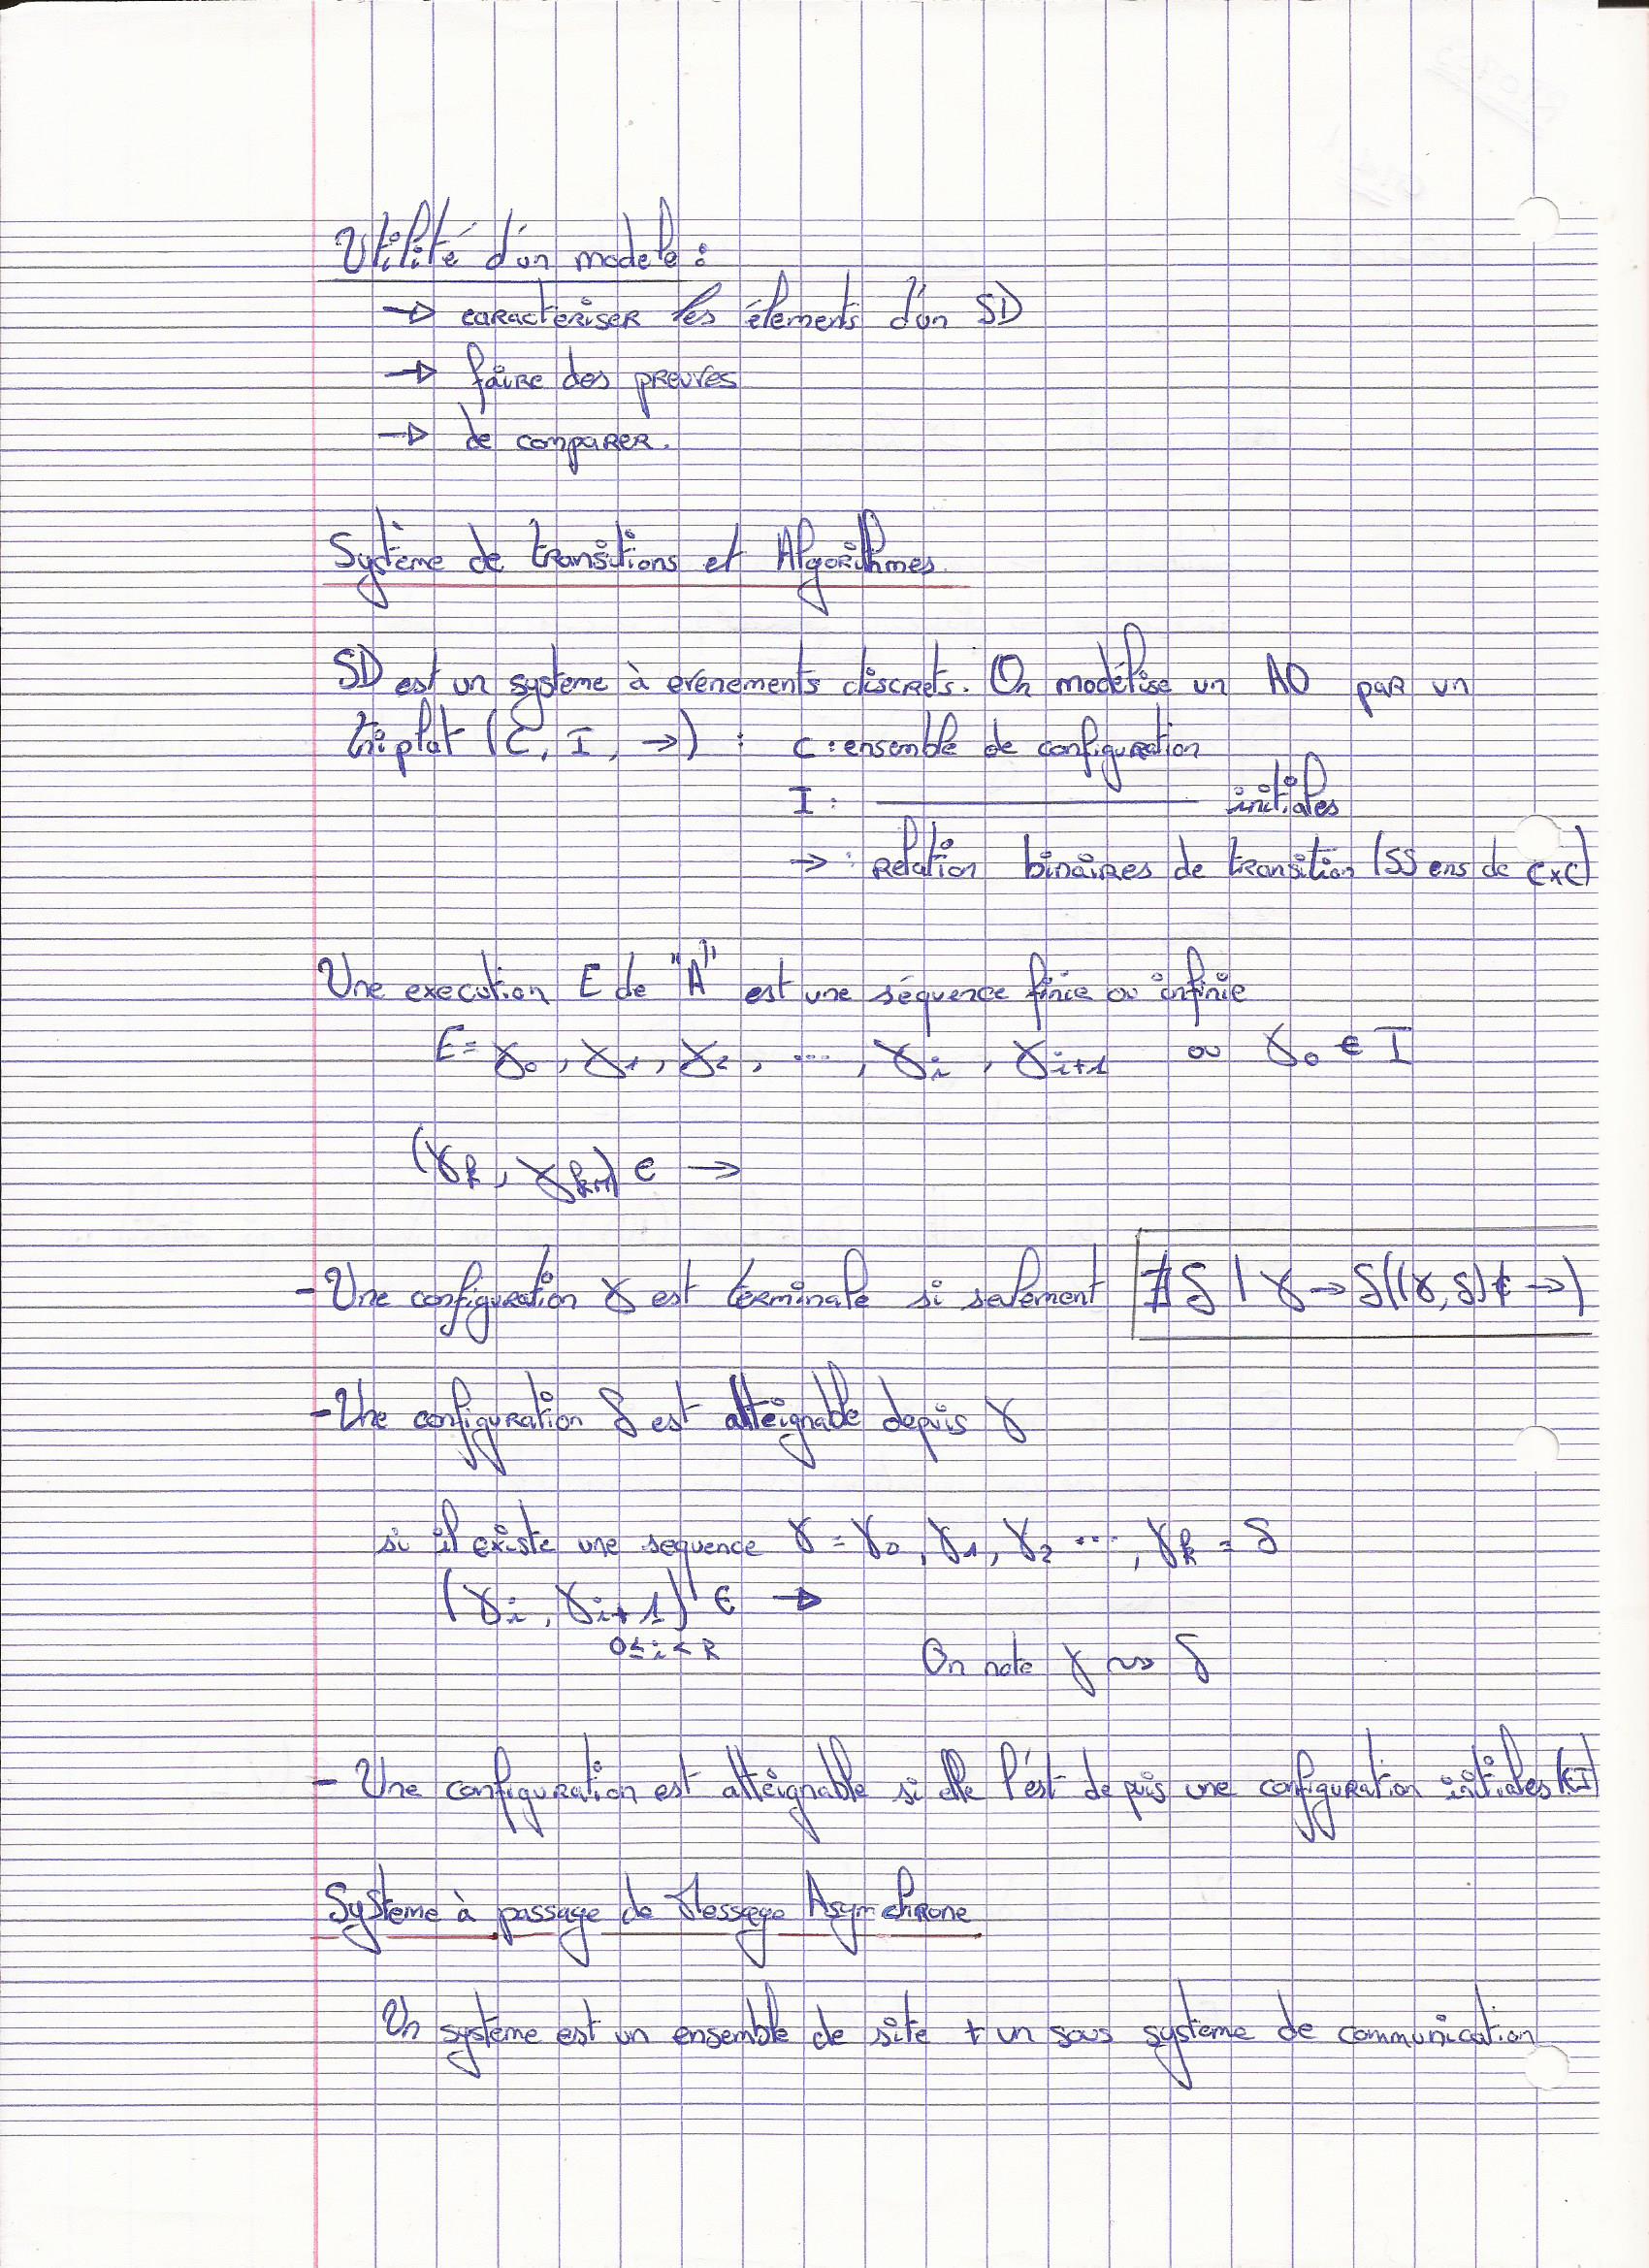 Utilité d'un modele :
→ caractériser les élements d'un SD
→ faire des preuves
→ de comparer.
Système de transitions et Algorithmes.
SD est un système à evenements discrets. On modélise un AD par un
triplat (C, I, →) : C : ensemble de configuration
I : ———————— initiales
→ : relation binaires de transition (SS ens de C×C)
Une execution E de "A" est une séquence finie ou infinie
E = γ₀, γ₁, γ₂, ..., γᵢ, γᵢ₊₁ ou γ₀ ∈ I
(γₖ, γₖ₊₁) ∈ →
- Une configuration γ est terminale si seulement ∄ δ | γ → δ ((γ, δ) ∉ →)
- Une configuration δ est atteignable depuis γ
si il existe une sequence γ = γ₀, γ₁, γ₂ ..., γₖ = δ
(γᵢ, γᵢ₊₁) ∈ →
0 ≤ i < k
On note γ ⇝ δ
- Une configuration est attéignable si elle l'est depuis une configuration initiales (∈I)
Système à passage de Message Asynchrone
Un système est un ensemble de site + un sous système de communication